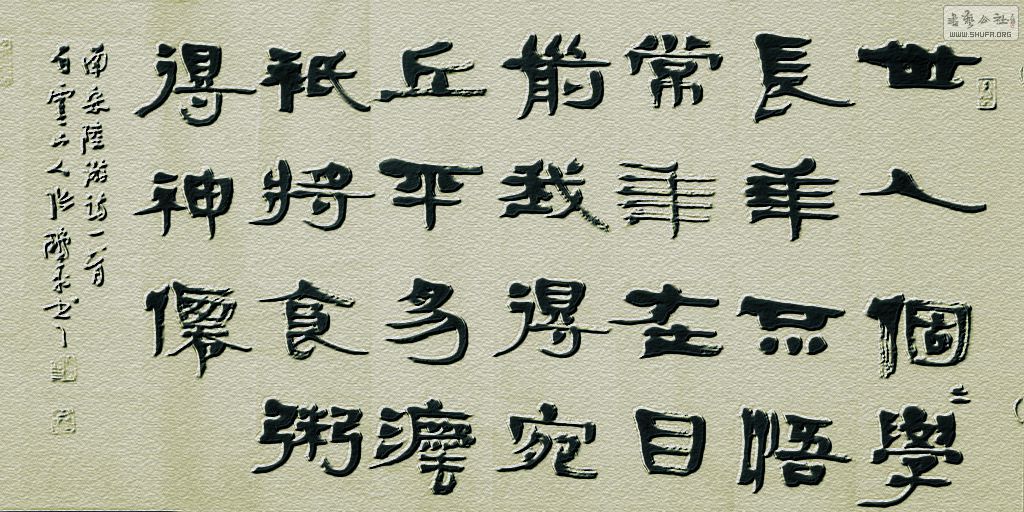 世人個〻學
長年不悟
常年在目
前我得宛
丘平易灋
祇將食粥
得神僊
南宋陸游詩一首
白雲山人張
书艺公社
WWW.SHUFA.ORG